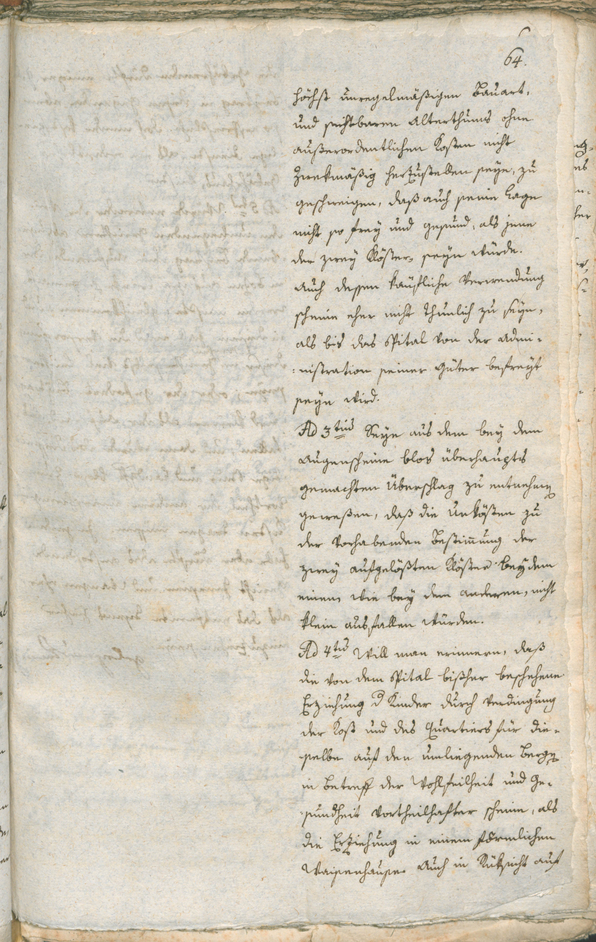 64.
höchst unregelmäßigen Bauart,
und sichtbaren Alterthums ohne
außerordentlichen Kosten nicht
zwekmäßig herzustellen seye, zu
geschweigen, daß auch seine Lage
nicht so frey und gesund, als jene
der zwey Klöster seyn würde.
Auch dessen käufliche Verwendung
scheine eher nicht thunlich zu seyn,
als bis das Spital von der Admi-
nistration seiner Güter befreyt
seyn wird.
Ad 3tius Seye aus dem bey dem
Augenscheine blos überhaupts
gemachten Überschlag zu entnehmen
gewesen, daß die Unkösten zu
der vorhabenden Bestimung der
zwey aufgelößten Klöster bey dem
einem wie bey dem anderen, nicht
klein ausfallen würden.
Ad 4tus Will man erinnern, daß
die von dem Spital bißher beschehene
Erziehung d Kinder durch Verdingung
der Kost und des Quartiers für die-
selbe auf den umliegenden Bergen
in Betreff der Wohlfeilheit und Ge-
sundheit vortheilhafter scheine, als
die Erziehung in einem förmlichen
Waisenhause. Auch in Rüksicht auf